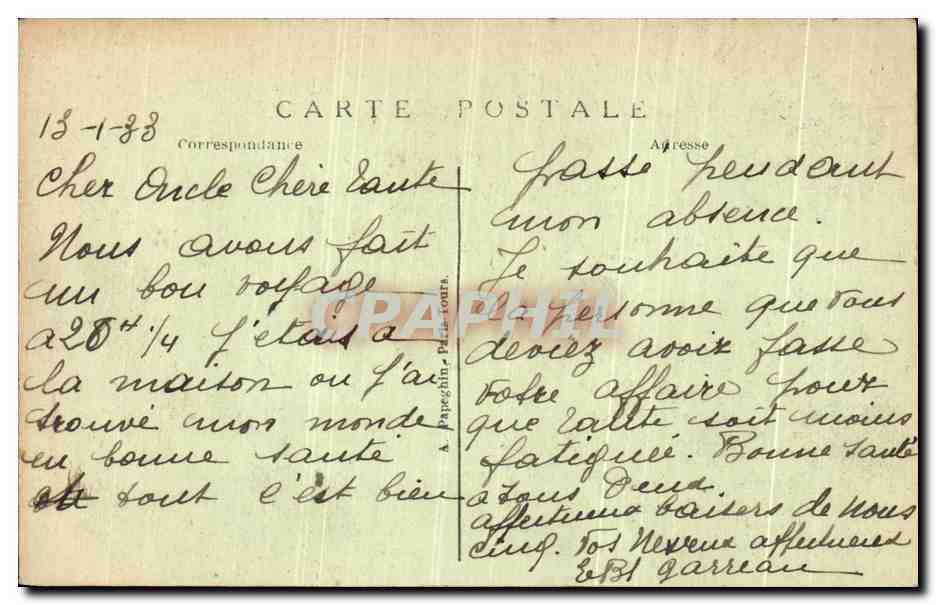 CARTE POSTALE
13-1-33
Correspondance
Cher Oncle Chère Tante
Nous avons fait
un bon voyage
a 20 H 1/4 j'étais a
la maison ou j'ai
trouvé mon monde
en bonne santé
tout c'est bien
A. Papeghin, Paris-Tours.
Adresse
passé pendant
mon absence.
Je souhaite que
la personne que vous
deviez avoir fasse
votre affaire pour
que Tante soit moins
fatiguée. Bonne santé
a tous Deux
affectueux baisers de nous
cinq. Vos Neveux affectueux
Garreau
CPAPHIL